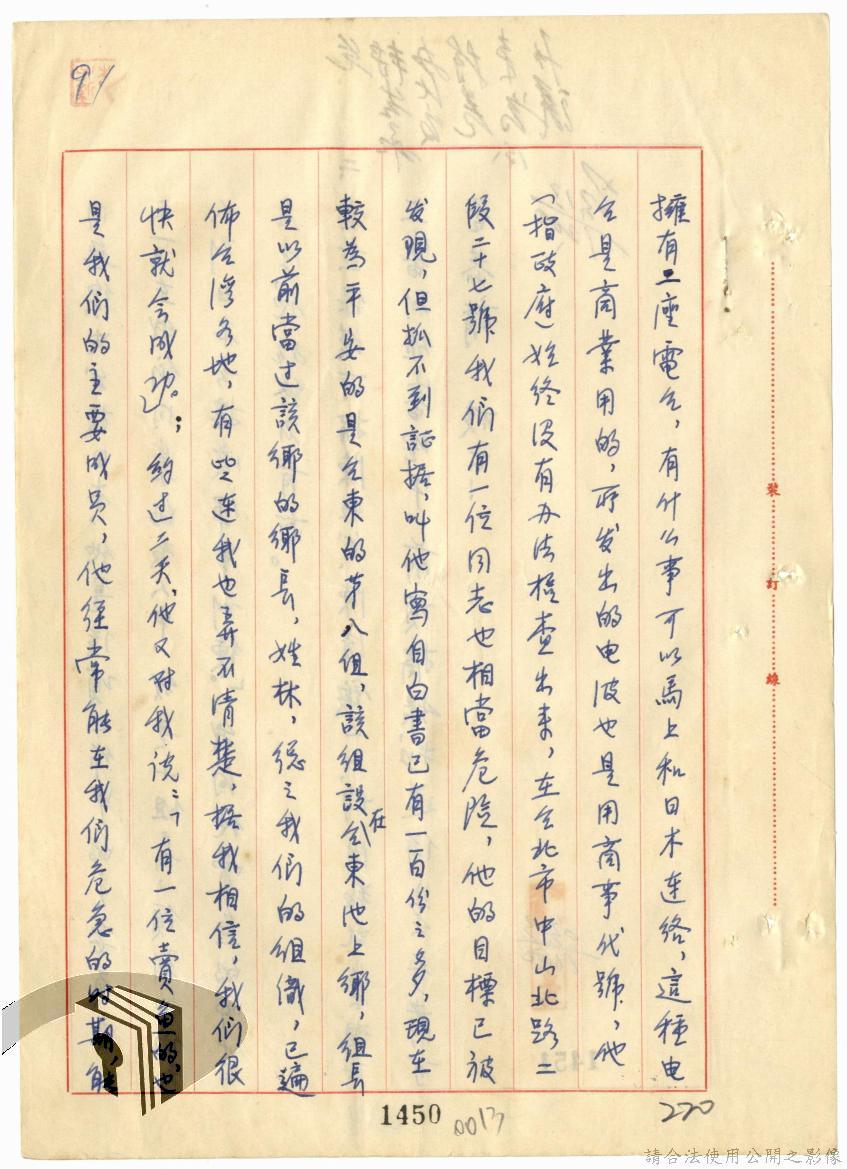 91
擁有二座電台，有什么事可以馬上和日本连络，這種电
台是商業用的，所发出的电波也是用商事代號，他
（指政府）始终没有办法檢查出来，在台北市中山北路二
段二十七號我们有一位同志也相當危险，他的目標已被
发現，但抓不到証据，叫他寫自白書已有一百份之多，現在
較為平安的是台東的第八组，該组設在台東池上鄉，组長
是以前當过該鄉的鄉長，姓林，總之我们的组織，已遍
佈台湾各地，有些连我也弄不清楚，据我相信，我们很
快就会成功。；約过二天，他又对我说：「有一位賣魚的，也
是我们的主要成员，他经常能在我们危急的时期，能
裝訂線
1450
0017
220
請合法使用公開之影像